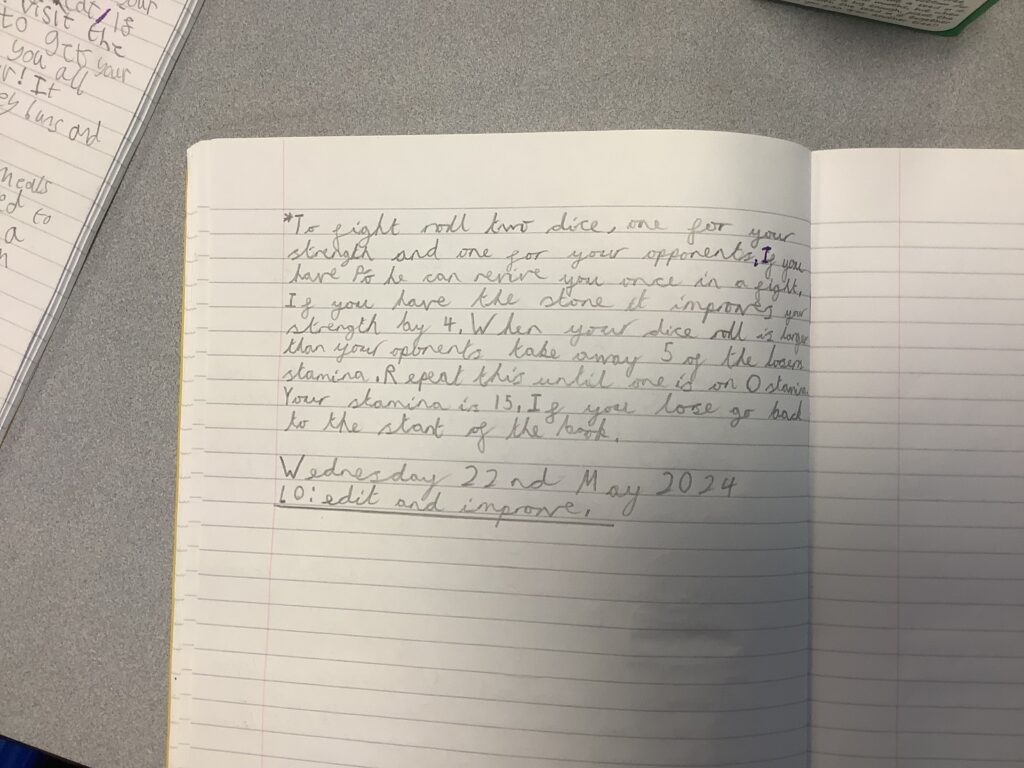 your
visit the
to get your
you all
r! It
ey buns and
meals
ed to
a
*To fight roll two dice, one for your
strength and one for your opponents. If you
have Ps he can revive you once in a fight.
If you have the stone it improves your
strength by 4. When your dice roll is larger
than your oponents take away 5 of the losers
stamina. Repeat this until one is on 0 stamina
Your stamina is 15. If you lose go back
to the start of the book.
Wednesday 22nd May 2024
LO: edit and improve.